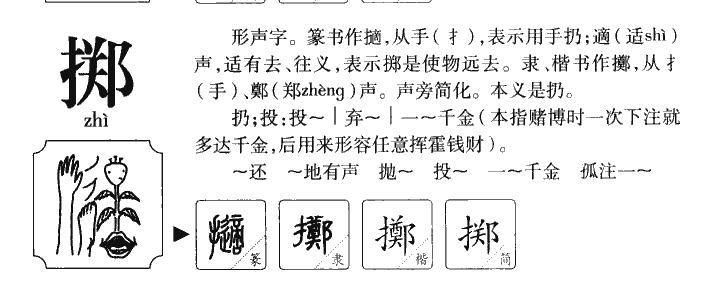 掷
zhì
形声字。篆书作擿,从手(扌),表示用手扔;適(适shì)
声,适有去、往义,表示掷是使物远去。隶、楷书作擲,从扌
(手)、鄭(郑zhèng)声。声旁简化。本义是扔。
扔;投:投～｜弃～｜一～千金(本指赌博时一次下注就
多达千金,后用来形容任意挥霍钱财)。
～还 ～地有声 抛～ 投～ 一～千金 孤注一～
擿 篆 擲 隶 擲 楷 掷 简